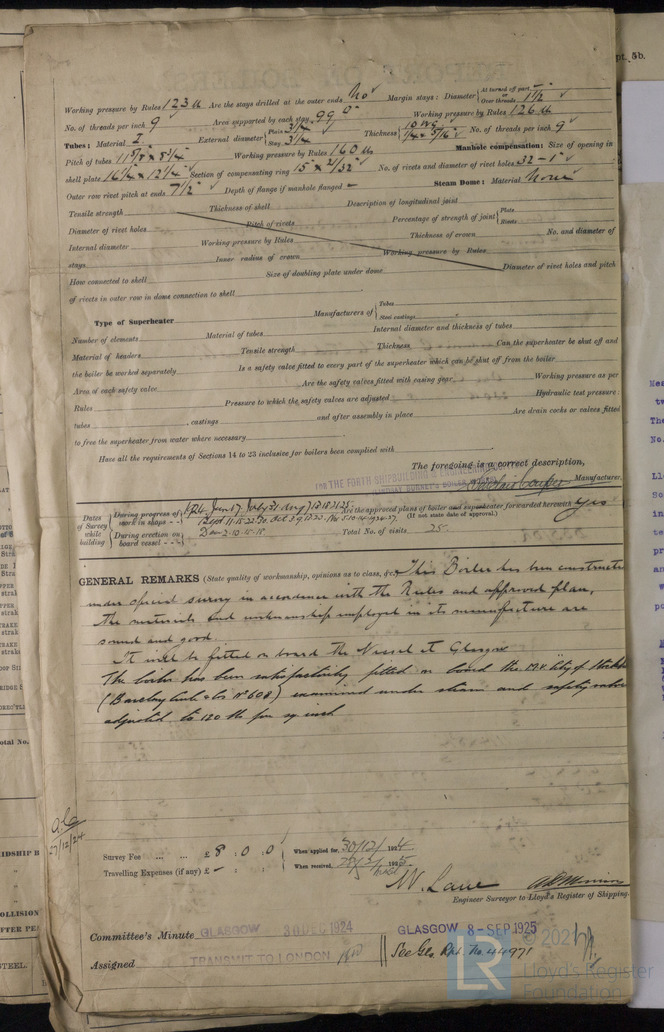 pt. 5b.
Working pressure by Rules 123 lb Are the stays drilled at the outer ends No Margin stays: Diameter { At turned off part - Over threads 1 1/2"
No. of threads per inch 9 Area supported by each stay 99 Working pressure by Rules 126 lb
Tubes: Material External diameter { Plain 3 1/4" Stay 3 1/4" Thickness { 10 WG 1/4" & 5/16" No. of threads per inch 9
Pitch of tubes Working pressure by Rules 160 lb Manhole compensation: Size of opening in
shell plate 16 1/4 x 12 1/4" Section of compensating ring 15" x 21/32" No. of rivets and diameter of rivet holes 32 - 1"
Outer row rivet pitch at ends 7 1/2" Depth of flange if manhole flanged - Steam Dome: Material None
Tensile strength Thickness of shell Description of longitudinal joint
Diameter of rivet holes Pitch of rivets Percentage of strength of joint { Plate Rivets
Internal diameter Working pressure by Rules Thickness of crown No. and diameter of
stays Inner radius of crown Working pressure by Rules
How connected to shell Size of doubling plate under dome Diameter of rivet holes and pitch
of rivets in outer row in dome connection to shell
Type of Superheater Manufacturers of { Tubes Steel castings
Number of elements Material of tubes Internal diameter and thickness of tubes
Material of headers Tensile strength Thickness Can the superheater be shut off and
the boiler be worked separately Is a safety valve fitted to every part of the superheater which can be shut off from the boiler
Area of each safety valve Are the safety valves fitted with easing gear Working pressure as per
Rules Pressure to which the safety valves are adjusted Hydraulic test pressure:
tubes , castings and after assembly in place Are drain cocks or valves fitted
to free the superheater from water where necessary
Have all the requirements of Sections 14 to 23 inclusive for boilers been complied with
The foregoing is a correct description,
FOR THE FORTH SHIPBUILDING & ENGINEERING
Manufacturer.
Dates of Survey while building { During progress of work in shops - - 1924 Are the approved plans of boiler and superheater forwarded herewith Yes
(If not state date of approval.)
During erection on board vessel - - - Dec 2.10.15.18 Total No. of visits 25
GENERAL REMARKS (State quality of workmanship, opinions as to class, &c. This Boiler has been constructed
under special survey in accordance with the Rules and approved plan,
the materials and workmanship employed in its manufacture are
sound and good.
It will be fitted on board the Vessel at Glasgow
The boiler has been satisfactorily fitted on board the M.V. City of
(Barclay Curle & Co No 608) examined under steam and safety valves
adjusted to 120 lb per sq inch
27/12/24
Survey Fee ... ... £ 8 : 0 : 0 When applied for, 30/12/1924
Travelling Expenses (if any) £ - : : When received, 1925
W. Lane
Engineer Surveyor to Lloyd's Register of Shipping.
Committee's Minute GLASGOW 30 DEC 1924 GLASGOW 8 - SEP 1925
Assigned TRANSMIT TO LONDON See Gls. Rpt. No. 44971
© 2021
LR
Lloyd's Register
Foundation